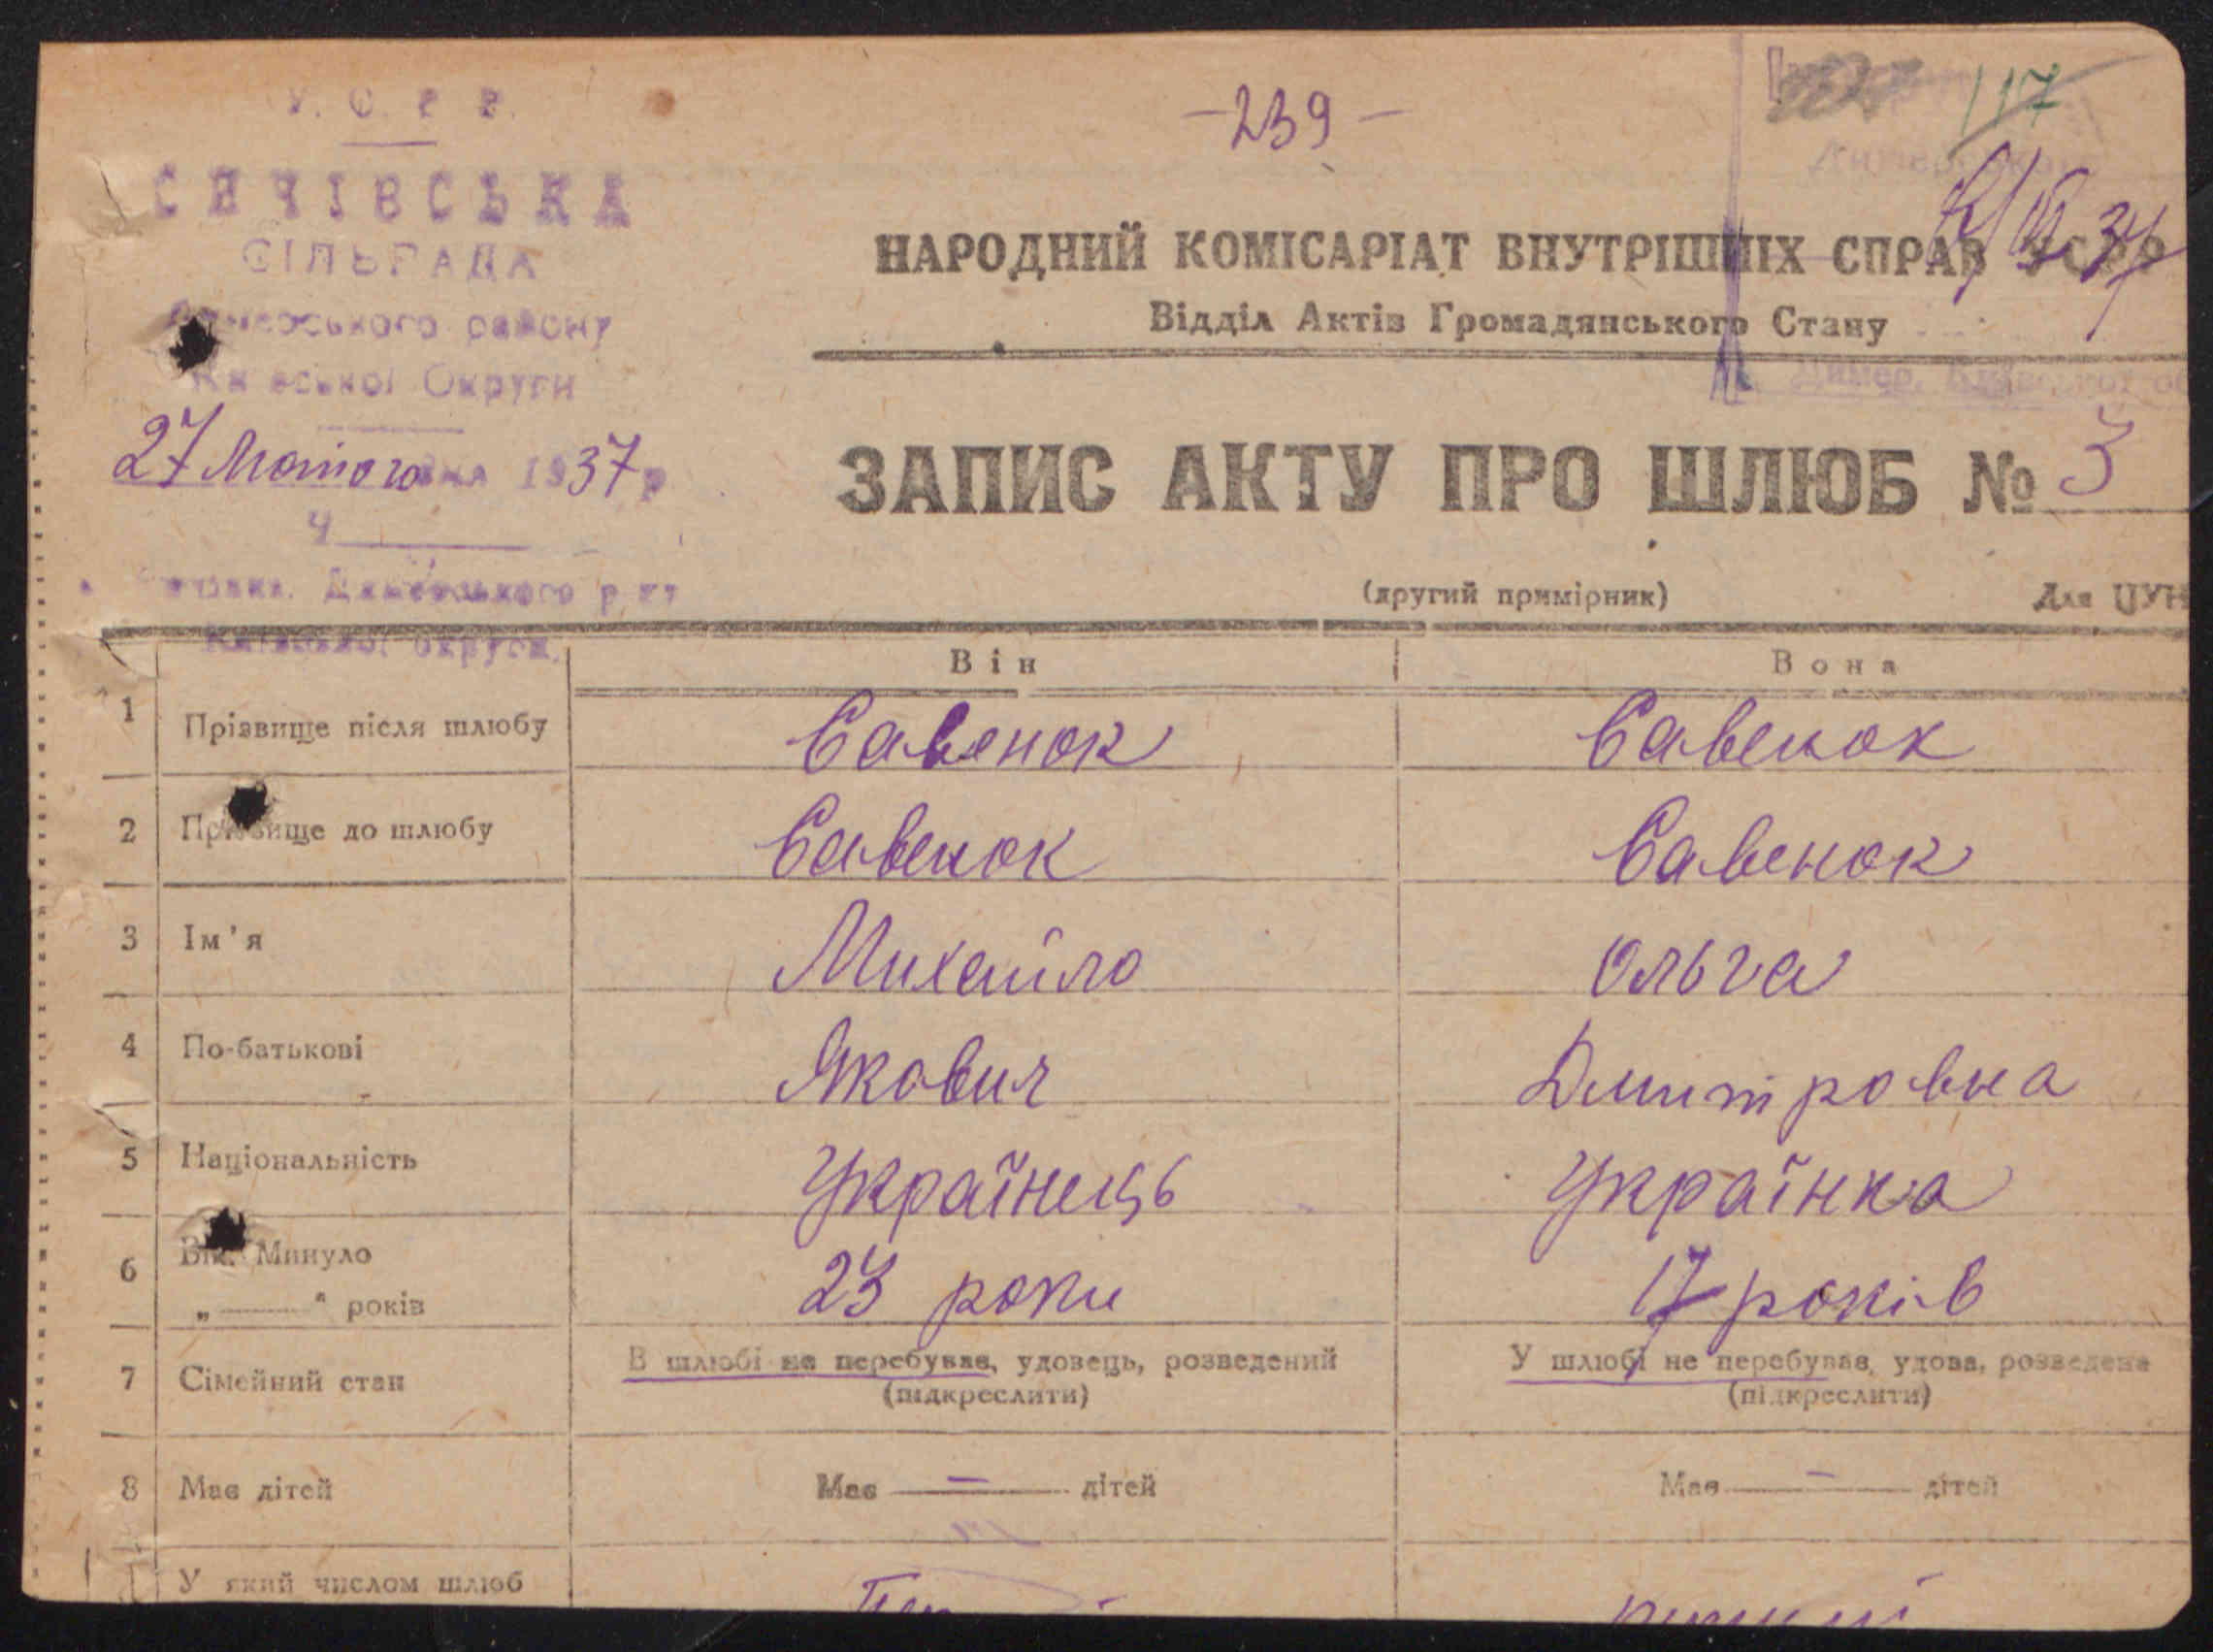 У. С. Р. Р.
- 239 -
117
СИЧІВСЬКА
СІЛЬРАДА
Димерського району
Київської Округи
27 Лютого дня 1937 р.
Ч
Димерського р-ну
Київської округи.
НАРОДНИЙ КОМІСАРІАТ ВНУТРІШНІХ СПРАВ УСРР
Відділ Актів Громадянського Стану
Димер, Київської об
ЗАПИС АКТУ ПРО ШЛЮБ № 3
(другий примірник) Для ЦУН
Він Вона
1 Прізвище після шлюбу Савенок Савенок
2 Прізвище до шлюбу Савенок Савенок
3 Ім'я Михайло Ольга
4 По-батькові Якович Дмитровна
5 Національність Українець Українка
6 Вік. Минуло 23 роки 17 років
„ “ років
7 Сімейний стан В шлюбі не перебував, удовець, розведений У шлюбі не перебував, удова, розведена
(підкреслити) (підкреслити)
8 Має дітей Має — дітей Має — дітей
У який числом шлюб